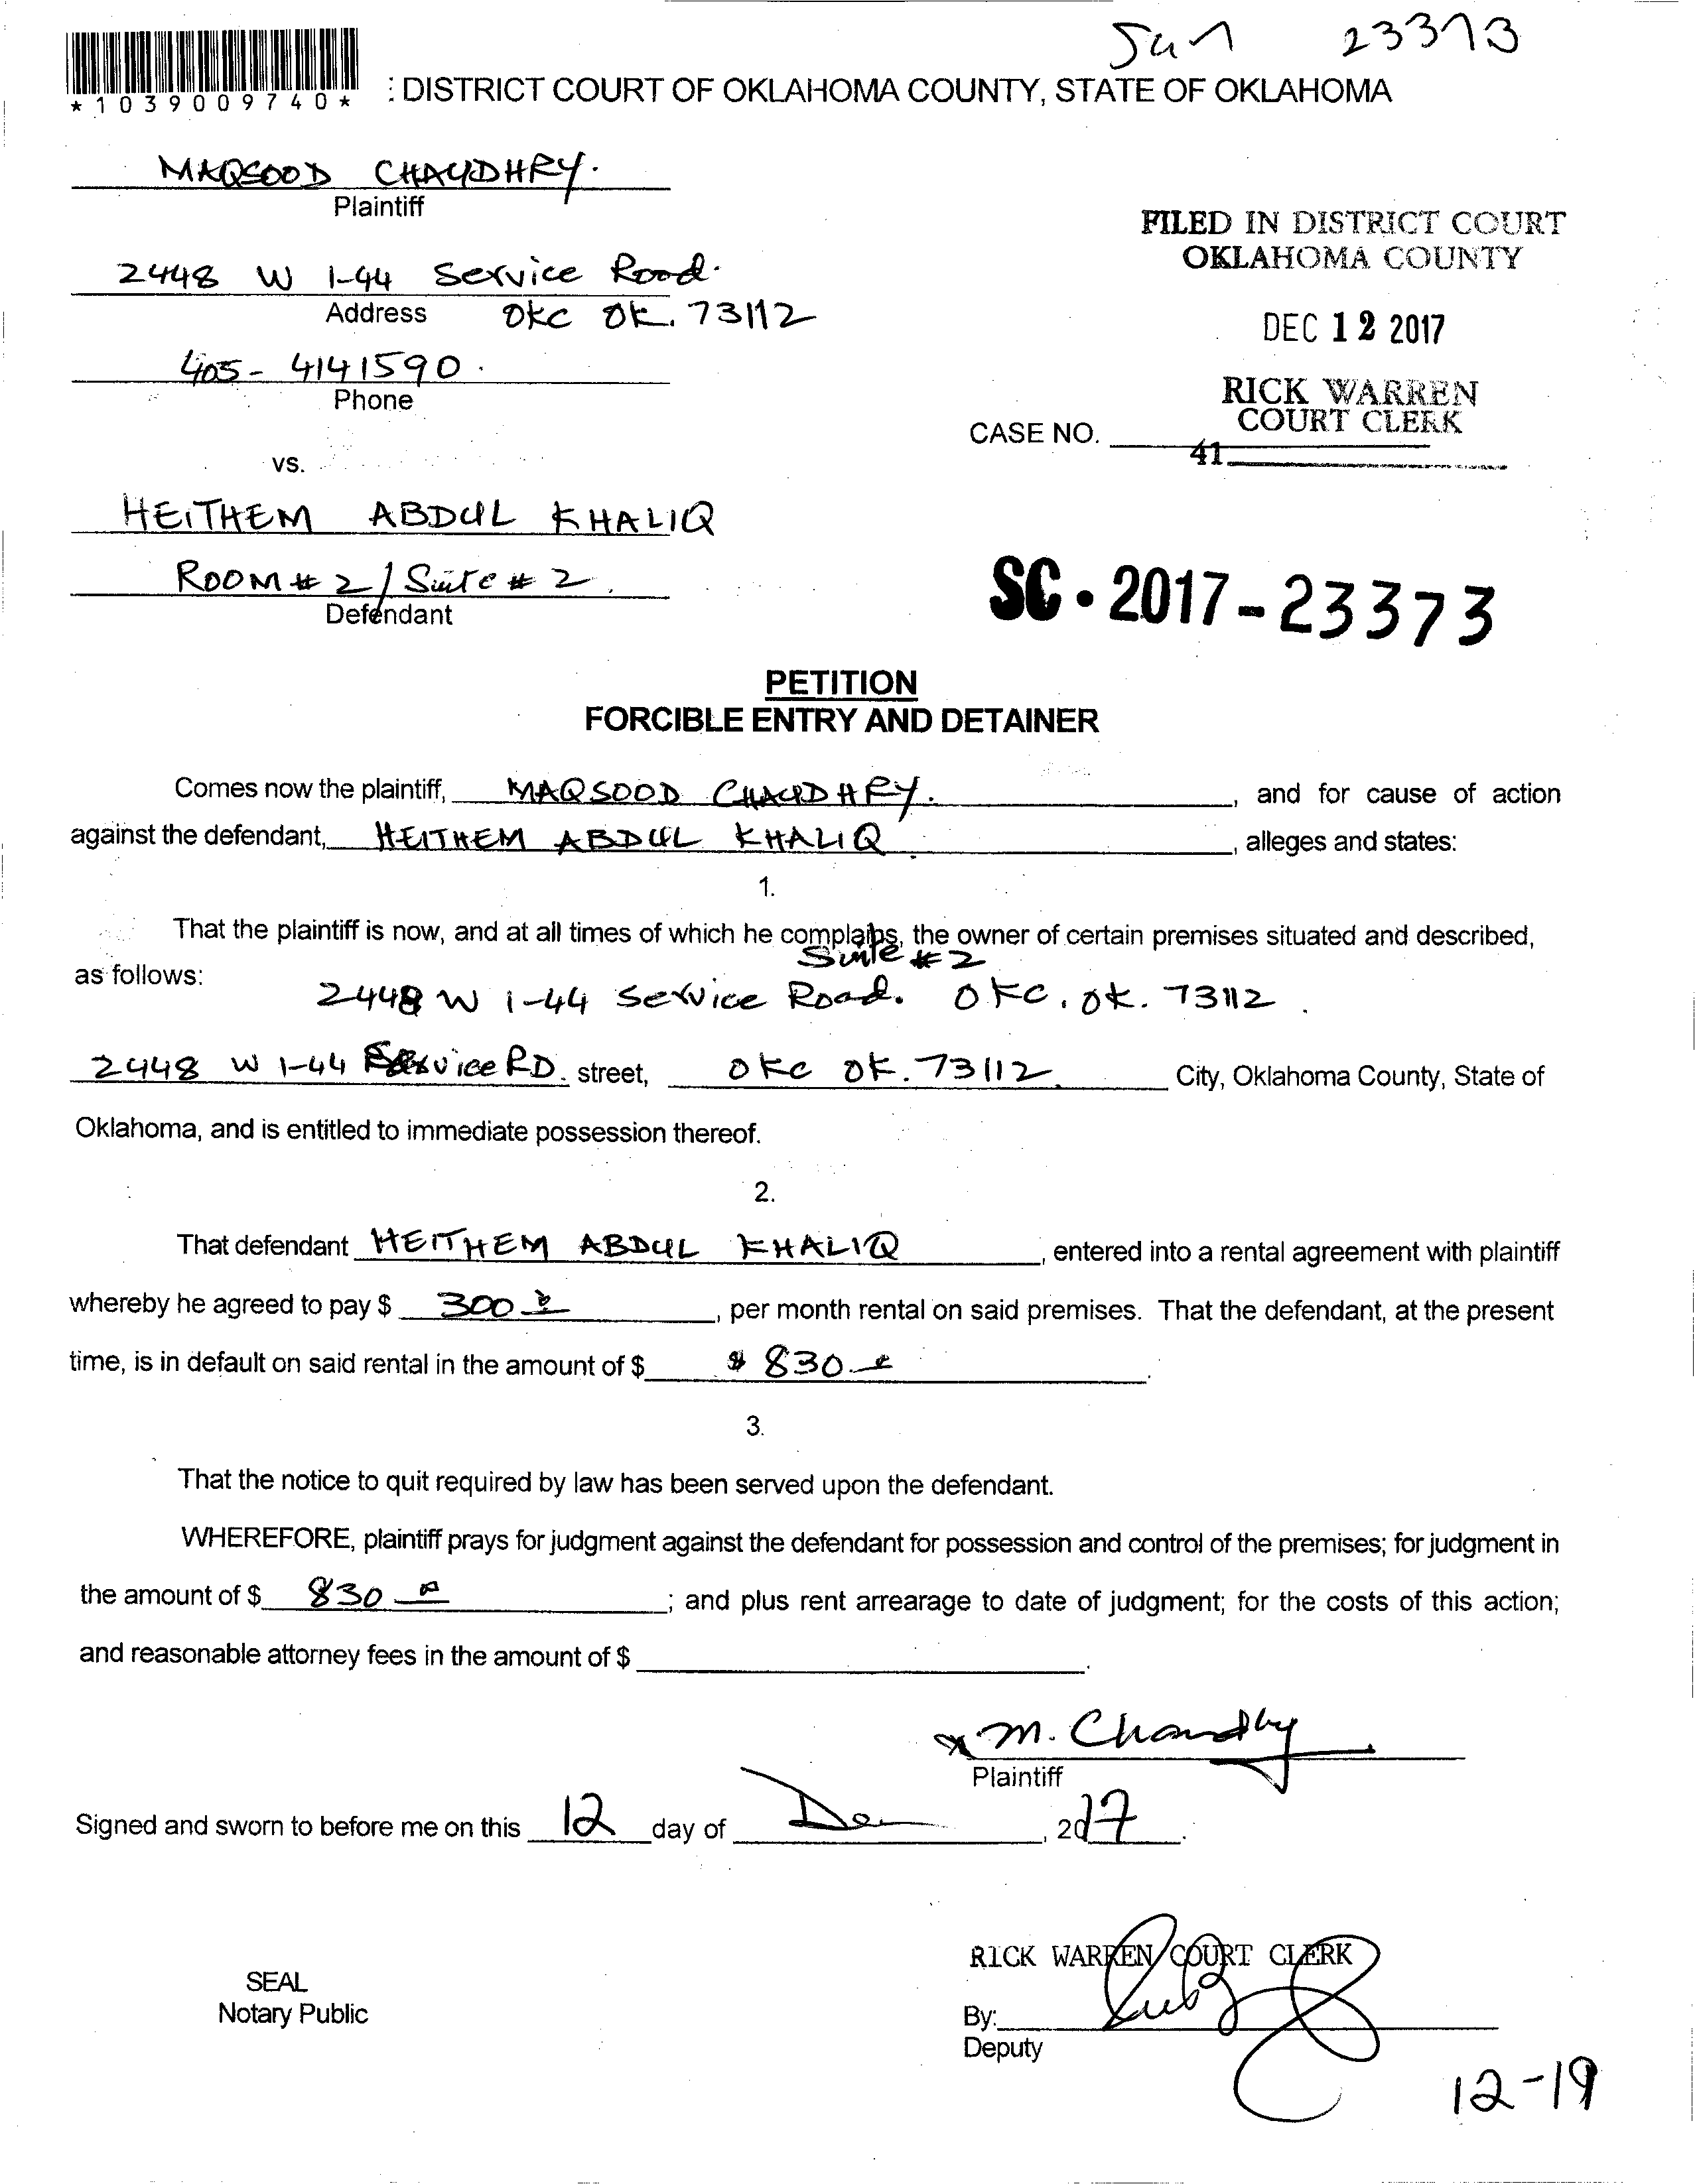 Jun 23373
*1039009740*
: DISTRICT COURT OF OKLAHOMA COUNTY, STATE OF OKLAHOMA
MAQSOOD CHAUDHRY.
Plaintiff
2448 W I-44 Service Road.
Address OKC OK. 73112
405-4141590.
Phone
FILED IN DISTRICT COURT
OKLAHOMA COUNTY
DEC 12 2017
RICK WARREN
COURT CLERK
CASE NO.
41
vs.
HEITHEM ABDUL KHALIQ
ROOM # 2 / Suite # 2.
Defendant
SC-2017-23373
PETITION
FORCIBLE ENTRY AND DETAINER
Comes now the plaintiff, MAQSOOD CHAUDHRY. , and for cause of action
against the defendant, HEITHEM ABDUL KHALIQ. , alleges and states:
1.
That the plaintiff is now, and at all times of which he complains, the owner of certain premises situated and described,
Suite # 2
as follows:
2448 W I-44 Service Road. OKC, OK. 73112.
2448 W I-44 Service RD. street, OKC OK. 73112. City, Oklahoma County, State of
Oklahoma, and is entitled to immediate possession thereof.
2.
That defendant HEITHEM ABDUL KHALIQ , entered into a rental agreement with plaintiff
whereby he agreed to pay $ 300 , per month rental on said premises. That the defendant, at the present
time, is in default on said rental in the amount of $ $ 830 .
3.
That the notice to quit required by law has been served upon the defendant.
WHEREFORE, plaintiff prays for judgment against the defendant for possession and control of the premises; for judgment in
the amount of $ 830 ; and plus rent arrearage to date of judgment; for the costs of this action;
and reasonable attorney fees in the amount of $ .
x M. Chaudhry
Plaintiff
Signed and sworn to before me on this 12 day of Dec , 2017.
RICK WARREN COURT CLERK
SEAL
Notary Public
By:
Deputy
12-19